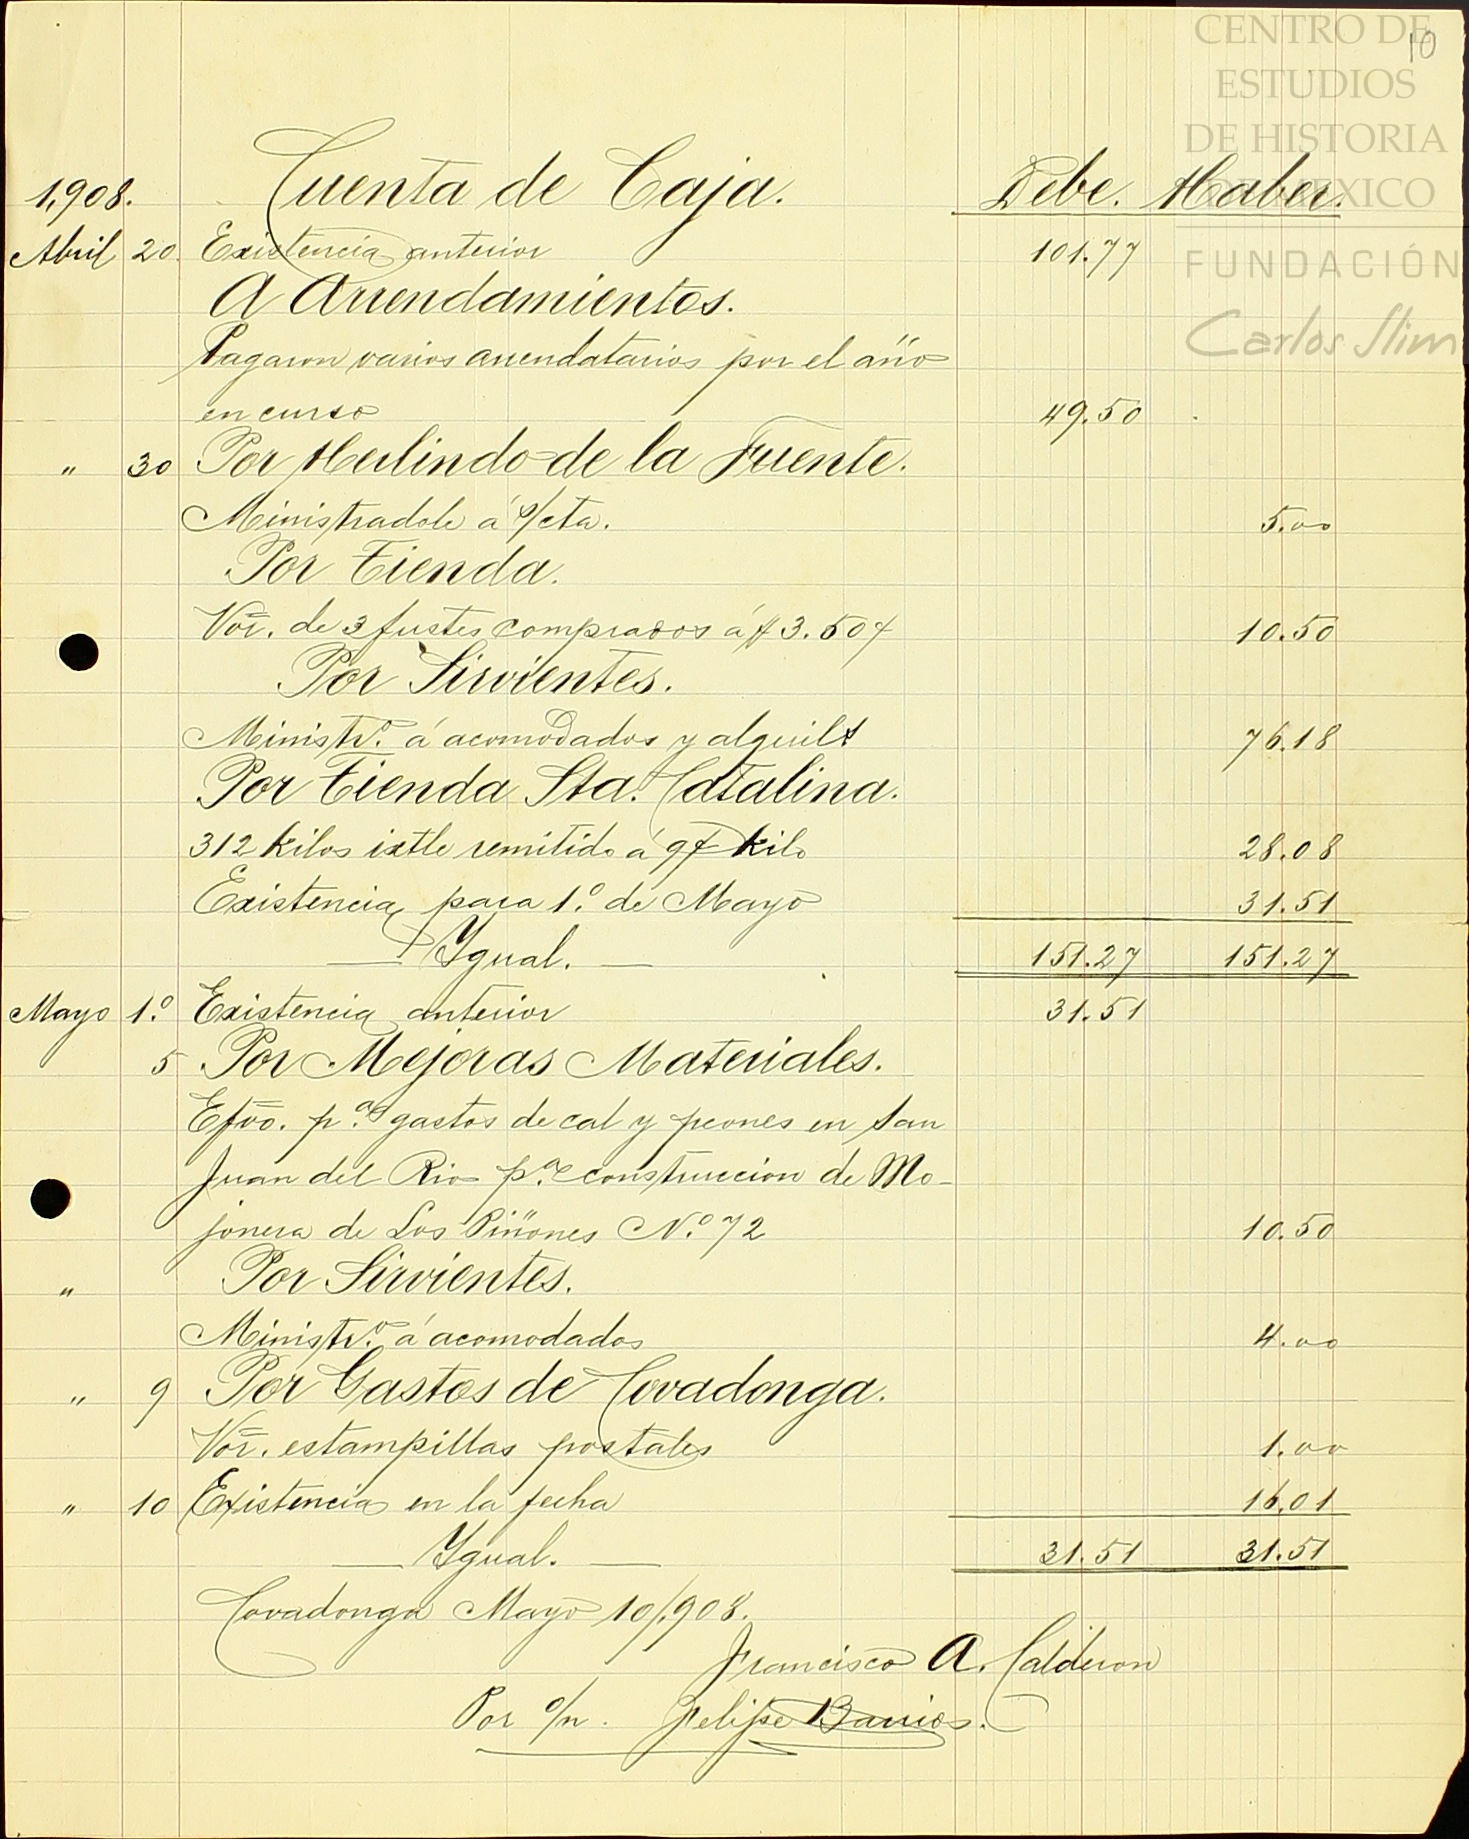 CENTRO DE
ESTUDIOS
DE HISTORIA
DE MEXICO
FUNDACIÓN
Carlos Slim
10
1,908. Cuenta de Caja. Debe. Haber.
Abril 20. Existencia anterior 101.77
A Arrendamientos.
Pagaron varios arrendatarios por el año
en curso 49.50
" 30 Por Herlindo de la Fuente.
Ministradole á s/cta. 5.00
Por Tienda.
Vor. de 3 fustes comprados á $ 3.50 ¢ 10.50
Por Sirvientes.
Ministro. á acomodados y alquils 76.18
Por Tienda Sta. Catalina.
312 kilos ixtle remitido á 9¢ kilo 28.08
Existencia para 1.º de Mayo 31.51
— Ygual. — 151.27 151.27
Mayo 1.º Existencia anterior 31.51
5 Por Mejoras Materiales.
Efvo. p.a gastos de cal y peones en San
Juan del Rio p.a construccion de Mo-
jonera de Los Piñones N.º 72 10.50
" Por Sirvientes.
Ministro. á acomodados 4.00
" 9 Por Gastos de Covadonga.
Vor. estampillas postales 1.00
" 10 Existencia en la fecha 16.01
— Ygual. — 31.51 31.51
Covadonga Mayo 10/1,908.
Francisco A. Calderon
Por o/n. Felipe Barrios.